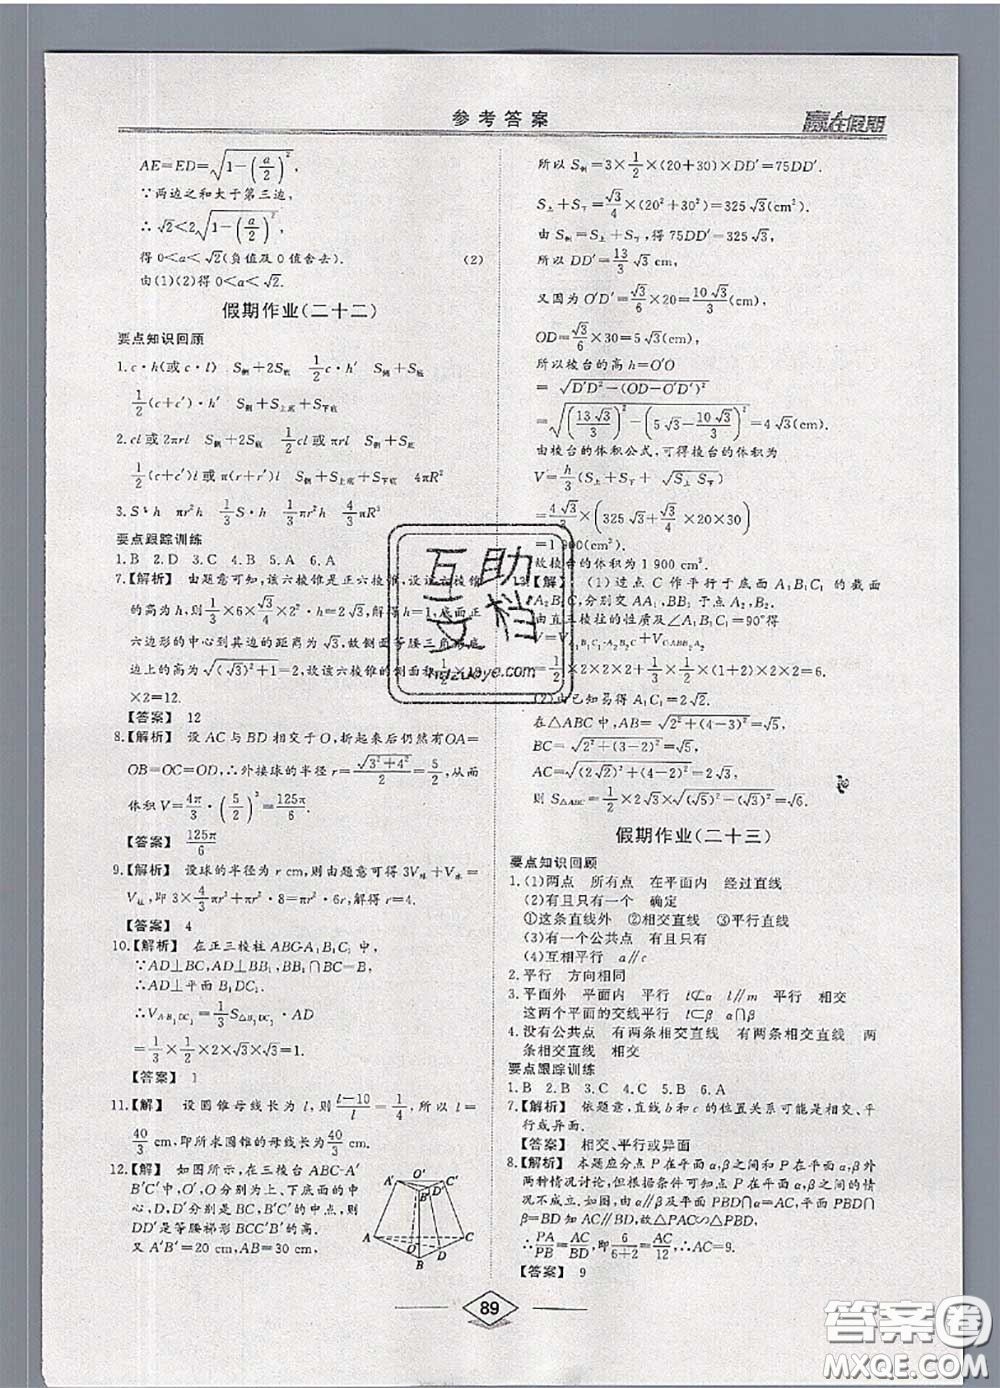 参考答案
赢在假期
AE=ED=√(1-(a/2)²)
∵两边之和大于第三边,
∴√2<2√(1-(a/2)²),
得 0<a<√2(负值及0值舍去). (2)
由(1)(2)得 0<a<√2.
假期作业(二十二)
要点知识回顾
1.c·h(或c·l) S侧+2S底 1/2c·h′ S侧+S底
1/2(c+c′)·h′ S侧+S上底+S下底
2.cl或2πrl S侧+2S底 1/2cl或πrl S侧+S底
1/2(c+c′)l或π(r+r′)l S侧+S上底+S下底 4πR²
3.S·h πr²h 1/3S·h 1/3πr²h 4/3πR³
要点跟踪训练
1.B 2.D 3.C 4.B 5.A 6.A
7.【解析】 由题意可知,该六棱锥是正六棱锥,设该六棱锥
的高为h,则1/3×6×√3/4×2²×h=2√3,解得h=1,底面正
六边形的中心到其边的距离为√3,故侧面等腰三角形底
边上的高为√((√3)²+1)=2,故该六棱锥的侧面积
×2=12.
【答案】 12
8.【解析】 设AC与BD相交于O,折起来后仍然有OA=
OB=OC=OD,∴外接球的半径r=√(3²+4²)/2=5/2,从而
体积V=4π/3·(5/2)³=125π/6.
【答案】 125π/6
9.【解析】 设球的半径为r cm,则由题意可得3V球+V水=
V柱,即3×4/3πr³+πr²×8=πr²×6r,解得r=4.
【答案】 4
10.【解析】 在正三棱柱ABC-A₁B₁C₁中,
∵AD⊥BC,AD⊥BB₁,BB₁∩BC=B,
∴AD⊥平面B₁DC₁.
∴V A-B₁DC₁=1/3S△B₁DC₁·AD
=1/3×1/2×2×√3×√3=1.
【答案】 1
11.【解】 设圆锥母线长为l,则(l-10)/l=1/4,所以l=
40/3,即所求圆锥的母线长为40/3 cm.
12.【解】 如图所示,在三棱台ABC-A′
B′C′中,O′,O分别为上、下底面的中
心,D,D′分别是BC,B′C′的中点,则
DD′是等腰梯形BCC′B′的高.
又A′B′=20 cm,AB=30 cm,
A′ O′ C′ B′ D′ A O B D C
所以S侧=3×1/2×(20+30)×DD′=75DD′.
S上+S下=√3/4×(20²+30²)=325√3(cm²).
由S侧=S上+S下,得75DD′=325√3,
所以DD′=13/3√3(cm),
又因为O′D′=√3/6×20=10√3/3(cm),
OD=√3/6×30=5√3(cm),
所以棱台的高h=O′O
=√(D′D²-(OD-O′D′)²)
=√((13√3/3)²-(5√3-10√3/3)²)=4√3(cm).
由棱台的体积公式,可得棱台的体积为
V=h/3(S上+S下+√(S上S下))
=4√3/3×(325√3+√3/4×20×30)
=1 900(cm³).
故棱台的体积为1 900 cm³.
13.【解】 (1)过点C作平行于底面A₁B₁C₁的截面
A₂B₂C,分别交AA₁,BB₁于点A₂,B₂.
由直三棱柱的性质及∠A₁B₁C₁=90°得
=1/2×2×2×2+1/3×1/2×(1+2)×2×2=6.
(2)由已知易得A₁C₁=2√2.
在△ABC中,AB=√(2²+(4-3)²)=√5,
BC=√(2²+(3-2)²)=√5,
AC=√((2√2)²+(4-2)²)=2√3,
则S△ABC=1/2×2√3×√((√5)²-(√3)²)=√6.
假期作业(二十三)
要点知识回顾
1.(1)两点 所有点 在平面内 经过直线
(2)有且只有一个 确定
①这条直线外 ②相交直线 ③平行直线
(3)有一个公共点 有且只有
(4)互相平行 a∥c
2.平行 方向相同
3.平面外 平面内 平行 l⊄α l∥m 平行 相交
这两个平面的交线平行 l⊂β α∩β
4.没有公共点 有两条相交直线 有两条相交直线 两
条相交直线 相交
要点跟踪训练
1.B 2.B 3.C 4.C 5.B 6.A
7.【解析】 依题意,直线b和c的位置关系可能是相交、平
行或异面.
【答案】 相交、平行或异面
8.【解析】 本题应分点P在平面α,β之间与点P在平面α,β外
两种情况讨论,但根据条件可知点P在平面α,β之间的情
况不成立.如图,由α∥β及平面PBD∩α=AC,平面PBD∩
β=BD知AC∥BD,故△PAC∽△PBD,
∴PA/PB=AC/BD,即6/(6+2)=AC/12,∴AC=9.
【答案】 9
89
互助文档
hdzuoye.com
答案圈
MXQE.COM